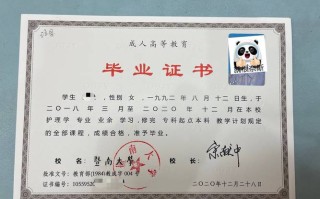 成人高等教育
毕业证书
学生 性别 女 一九九二年 八月十二日生，于
二〇一八年 三月至二〇二〇年 十二月在本校
护理学 专业 业余 学习，修完 专科起点本科 教学计划规定
的全部课程，成绩合格，准予毕业。
校 名： 暨南大学
批准文号：教育部(1984)教成字004号
证书编号：
校长：
二〇二〇年十二月二十八日